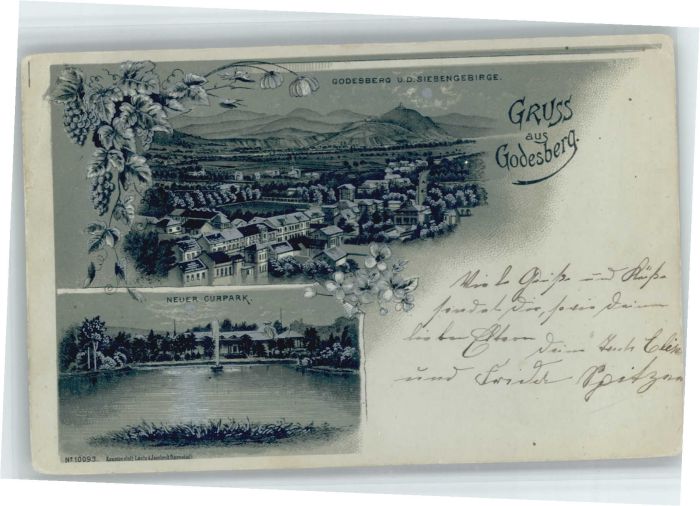 GODESBERG U.D. SIEBENGEBIRGE.
GRUSS
aus
Godesberg.
NEUER CURPARK.
Viele Grüße und Küße
sendet Dir, sowie Deinen
lieben Eltern
Deine Tante
und Frida
Nº 10093.